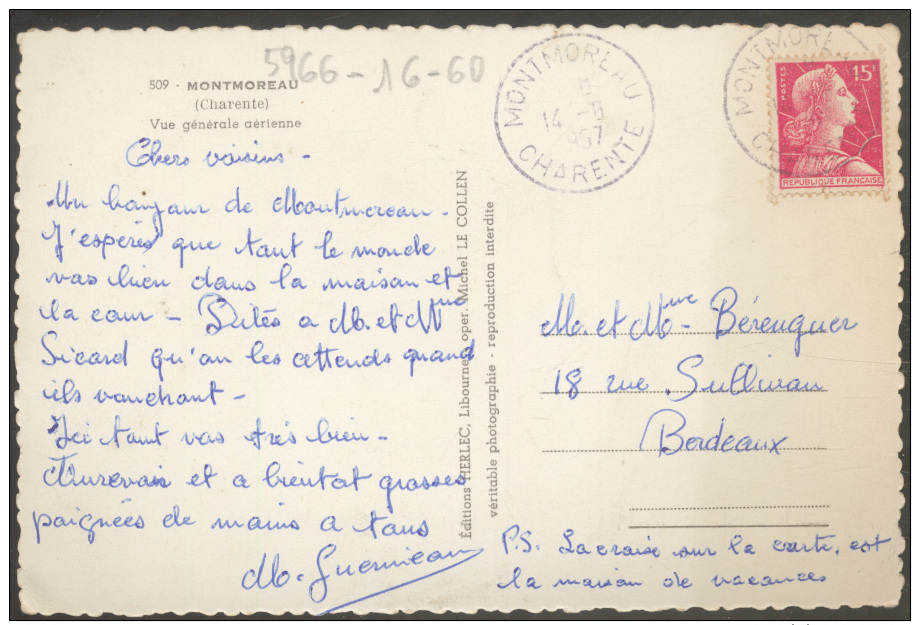 5966-16-60
509 - MONTMOREAU
(Charente)
Vue générale aérienne
MONTMOREAU
14
CHARENTE
MONTMOREAU
POSTES
15F
REPUBLIQUE FRANÇAISE
Chers voisins -
Un bonjour de Montmoreau -
J'espères que tout le monde
vas bien dans la maison et
la cour - Dites a M. et Mme
Sicard qu'on les attends quand
ils voudront -
Ici tout vas très bien -
Aurevoir et a bientot grosses
poignées de mains a tous
Éditions HERLEC, Libourne, oper. Michel LE COLLEN
véritable photographie - reproduction interdite
M. et Mme - Bérenguer
18 rue Sullivan
Bordeaux
P.S. La croix sur la carte, est
la maison de vacances